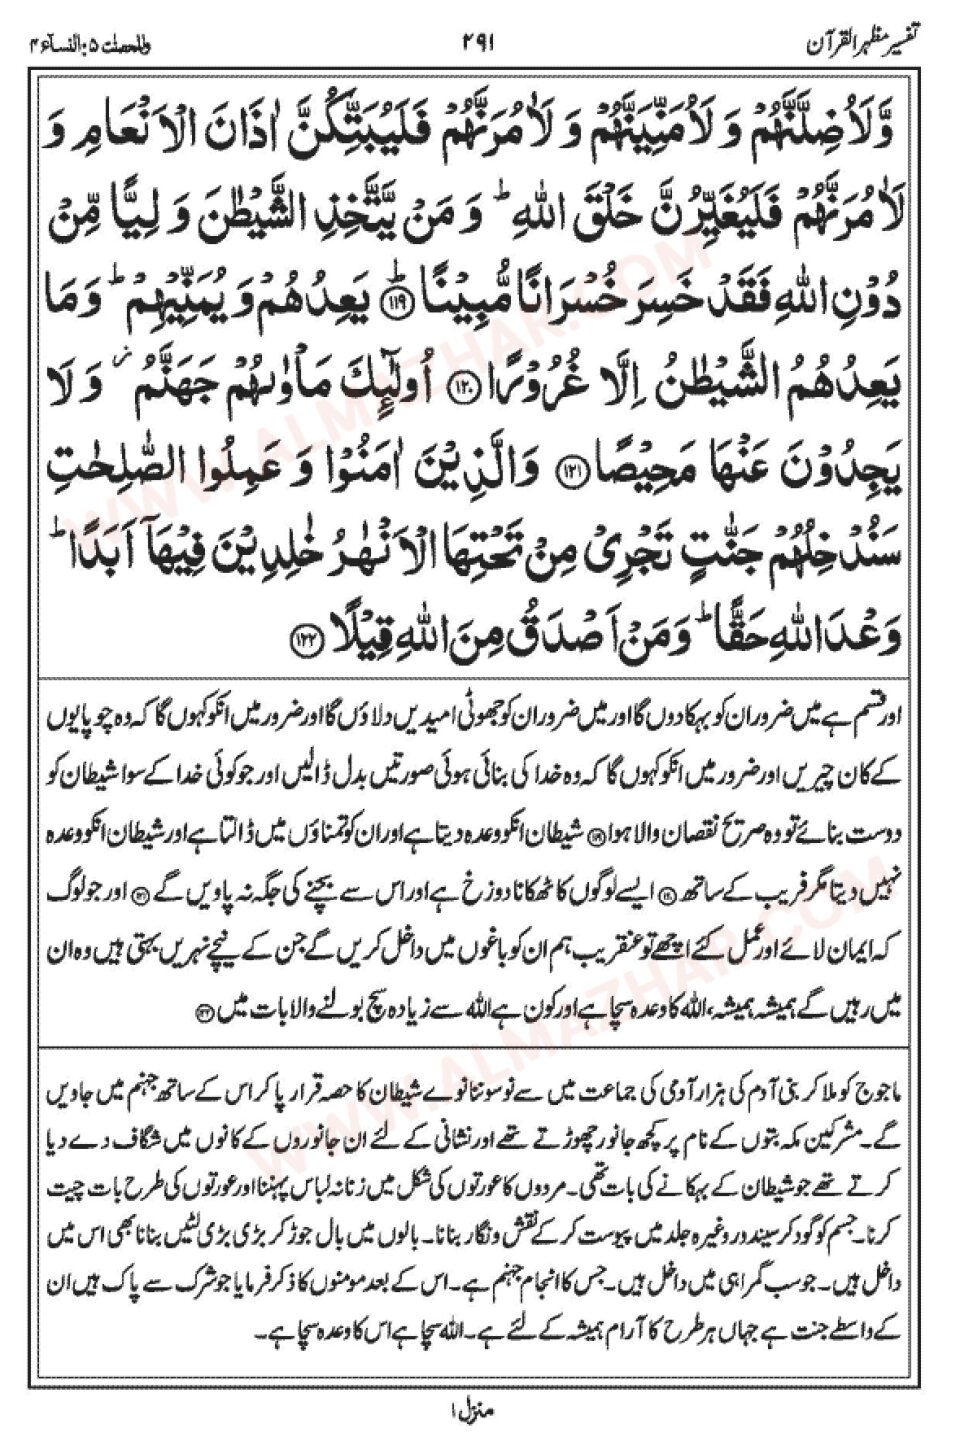 تفسیر مظہر القرآن
۲۹۱
والمحصنٰت ۵: النسآء ۴
وَّلَاُضِلَّنَّهُمْ وَلَاُمَنِّيَنَّهُمْ وَلَاٰمُرَنَّهُمْ فَلَيُبَتِّكُنَّ اٰذَانَ الْاَنْعَامِ وَ
لَاٰمُرَنَّهُمْ فَلَيُغَيِّرُنَّ خَلْقَ اللّٰهِ ؕ وَمَنْ يَّتَّخِذِ الشَّيْطٰنَ وَلِيًّا مِّنْ
دُوْنِ اللّٰهِ فَقَدْ خَسِرَ خُسْرَانًا مُّبِيْنًا ؕ ﴿۱۱۹﴾ يَعِدُهُمْ وَيُمَنِّيْهِمْ ؕ وَمَا
يَعِدُهُمُ الشَّيْطٰنُ اِلَّا غُرُوْرًا ﴿۱۲۰﴾ اُولٰٓئِكَ مَاْوٰىهُمْ جَهَنَّمُ ز وَلَا
يَجِدُوْنَ عَنْهَا مَحِيْصًا ﴿۱۲۱﴾ وَالَّذِيْنَ اٰمَنُوْا وَعَمِلُوا الصّٰلِحٰتِ
سَنُدْخِلُهُمْ جَنّٰتٍ تَجْرِيْ مِنْ تَحْتِهَا الْاَنْهٰرُ خٰلِدِيْنَ فِيْهَآ اَبَدًا ؕ
وَعْدَ اللّٰهِ حَقًّا ؕ وَمَنْ اَصْدَقُ مِنَ اللّٰهِ قِيْلًا ﴿۱۲۲﴾
اور قسم ہے میں ضرور ان کو بہکا دوں گا اور میں ضرور ان کو جھوٹی امیدیں دلاؤں گا اور ضرور میں انکو کہوں گا کہ وہ چوپایوں
کے کان چیریں اور ضرور میں انکو کہوں گا کہ وہ خدا کی بنائی ہوئی صورتیں بدل ڈالیں اور جو کوئی خدا کے سوا شیطان کو
دوست بنائے تو وہ صریح نقصان والا ہوا ﴿۱۱۹﴾ شیطان انکو وعدہ دیتا ہے اور ان کو تمناؤں میں ڈالتا ہے اور شیطان انکو وعدہ
نہیں دیتا مگر فریب کے ساتھ ﴿۱۲۰﴾ ایسے لوگوں کا ٹھکانا دوزخ ہے اور اس سے بچنے کی جگہ نہ پاویں گے ﴿۱۲۱﴾ اور جو لوگ
کہ ایمان لائے اور عمل کئے اچھے تو عنقریب ہم ان کو باغوں میں داخل کریں گے جن کے نیچے نہریں بہتی ہیں وہ ان
میں رہیں گے ہمیشہ ہمیشہ، اللہ کا وعدہ سچا ہے اور کون ہے اللہ سے زیادہ سچ بولنے والا بات میں ﴿۱۲۲﴾
ماجوج کو ملا کر بنی آدم کی ہزار آدمی کی جماعت میں سے نو سو ننانوے شیطان کا حصہ قرار پا کر اس کے ساتھ جہنم میں جاویں
گے۔ مشرکین مکہ بتوں کے نام پر کچھ جانور چھوڑتے تھے اور نشانی کے لئے ان جانوروں کے کانوں میں شگاف دے دیا
کرتے تھے جو شیطان کے بہکانے کی بات تھی۔ مردوں کا عورتوں کی شکل میں زنانہ لباس پہننا اور عورتوں کی طرح بات چیت
کرنا۔ جسم کو گود کر سیندور وغیرہ جلد میں پیوست کر کے نقش و نگار بنانا۔ بالوں میں بال جوڑ کر بڑی بڑی لٹیں بنانا بھی اس میں
داخل ہیں۔ جو سب گمراہی میں داخل ہیں۔ جس کا انجام جہنم ہے۔ اس کے بعد مومنوں کا ذکر فرمایا جو شرک سے پاک ہیں ان
کے واسطے جنت ہے جہاں ہر طرح کا آرام ہمیشہ کے لئے ہے۔ اللہ سچا ہے اس کا وعدہ سچا ہے۔
منزل ۱
WWW.ALMAZHAR.COM
WWW.ALMAZHAR.COM